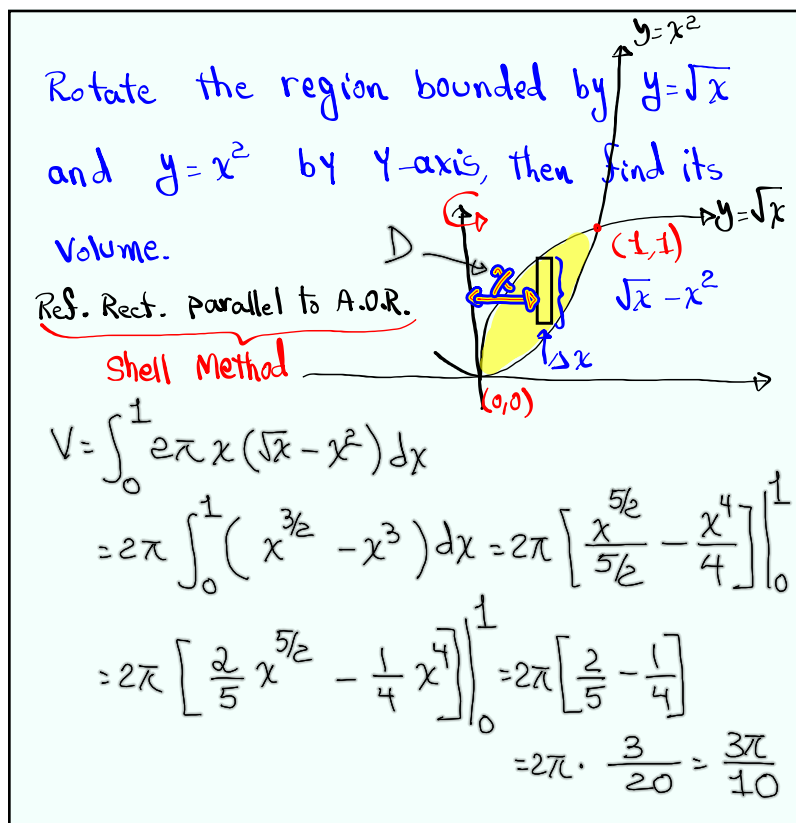 y=x²
Rotate the region bounded by y=√x
and y=x² by Y-axis, then find its
Volume.
y=√x
D
(1,1)
x
√x - x²
Ref. Rect. parallel to A.O.R.
Shell Method
Δx
(0,0)
V=∫₀¹ 2πx(√x - x²)dx
=2π∫₀¹( x^{3/2} - x³ )dx = 2π[x^{5/2}/(5/2) - x⁴/4]|₀¹
=2π[2/5 x^{5/2} - 1/4 x⁴]|₀¹ =2π[2/5 - 1/4]
=2π· 3/20 = 3π/10